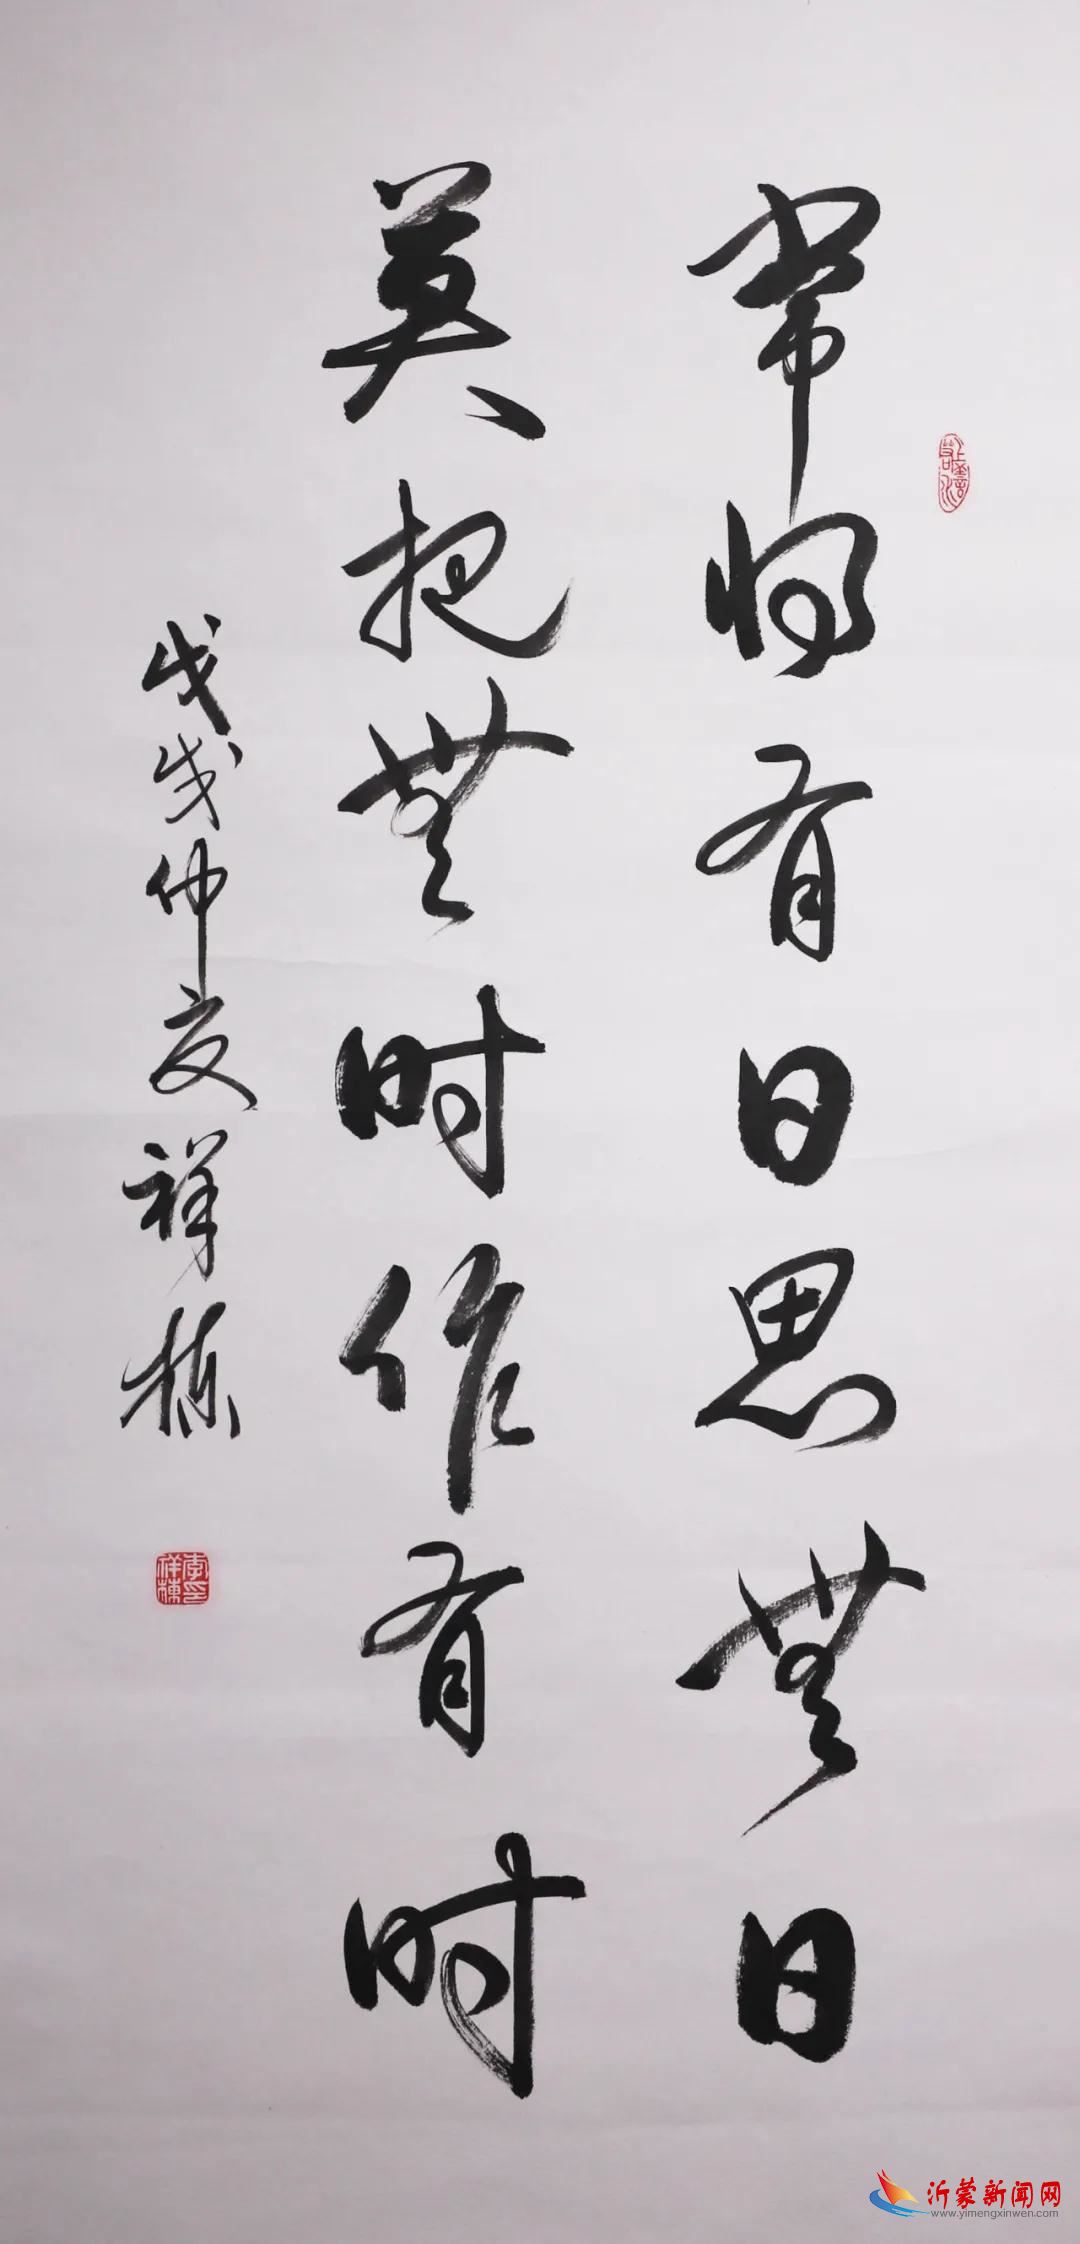 常将有日思無日
莫把無时作有时
戊戌仲夏祥栋
李祥栋印
沂蒙新闻网
www.yimengxinwen.com